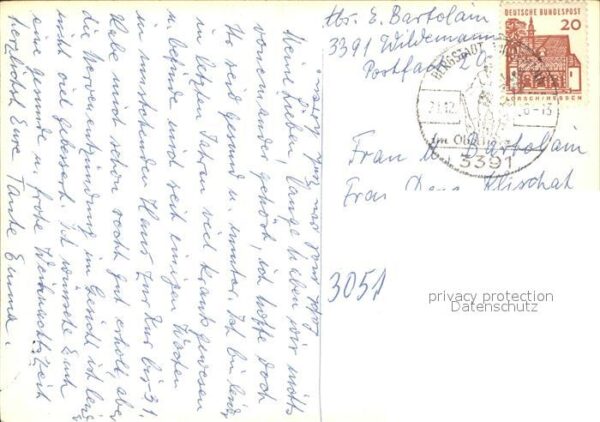 Abs. E. Bartolain
3391 Wildemann
Postfach 29
DEUTSCHE BUNDESPOST
20
LORSCH/HESSEN
BERGSTADT
21.12.
-15
Im Oberharz
3391
Frau u. Bartolain
Frau Klischat
3051
privacy protection
Datenschutz
Meine Lieben, lange haben wir nichts
voneinander gehört, ich hoffe doch
Ihr seid gesund u. munter. Ich bin leider
in letzten Jahren viel krank gewesen
u. befinde mich seit einigen Wochen
in umstehenden Haus zur Kur bis 31.
Habe mich schon recht gut erholt, aber
die Nervenentzündung im Gesicht ist leider
nicht viel gebessert. Ich wünsche Euch
eine gesunde u. frohe Weihnachtszeit
herzlichst Eure Tante Emma.